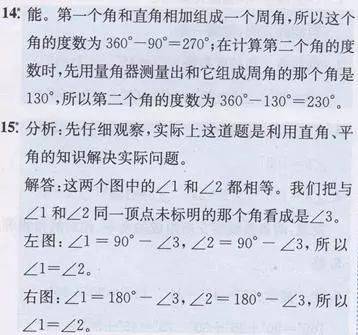 14. 能。第一个角和直角相加组成一个周角,所以这个
角的度数为 360°－90°＝270°;在计算第二个角的度
数时,先用量角器测量出和它组成周角的那个角是
130°,所以第二个角的度数为 360°－130°＝230°。
15. 分析:先仔细观察,实际上这道题是利用直角、平
角的知识解决实际问题。
解答:这两个图中的∠1 和∠2 都相等。我们把与
∠1 和∠2 同一顶点未标明的那个角看成是∠3。
左图:∠1 ＝ 90°－∠3,∠2 ＝ 90°－∠3,所以
∠1＝∠2。
右图:∠1＝180°－∠3,∠2＝180°－∠3,所以
∠1＝∠2。